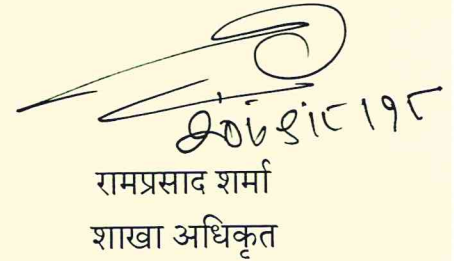 २०७९।८।१८
रामप्रसाद शर्मा
शाखा अधिकृत